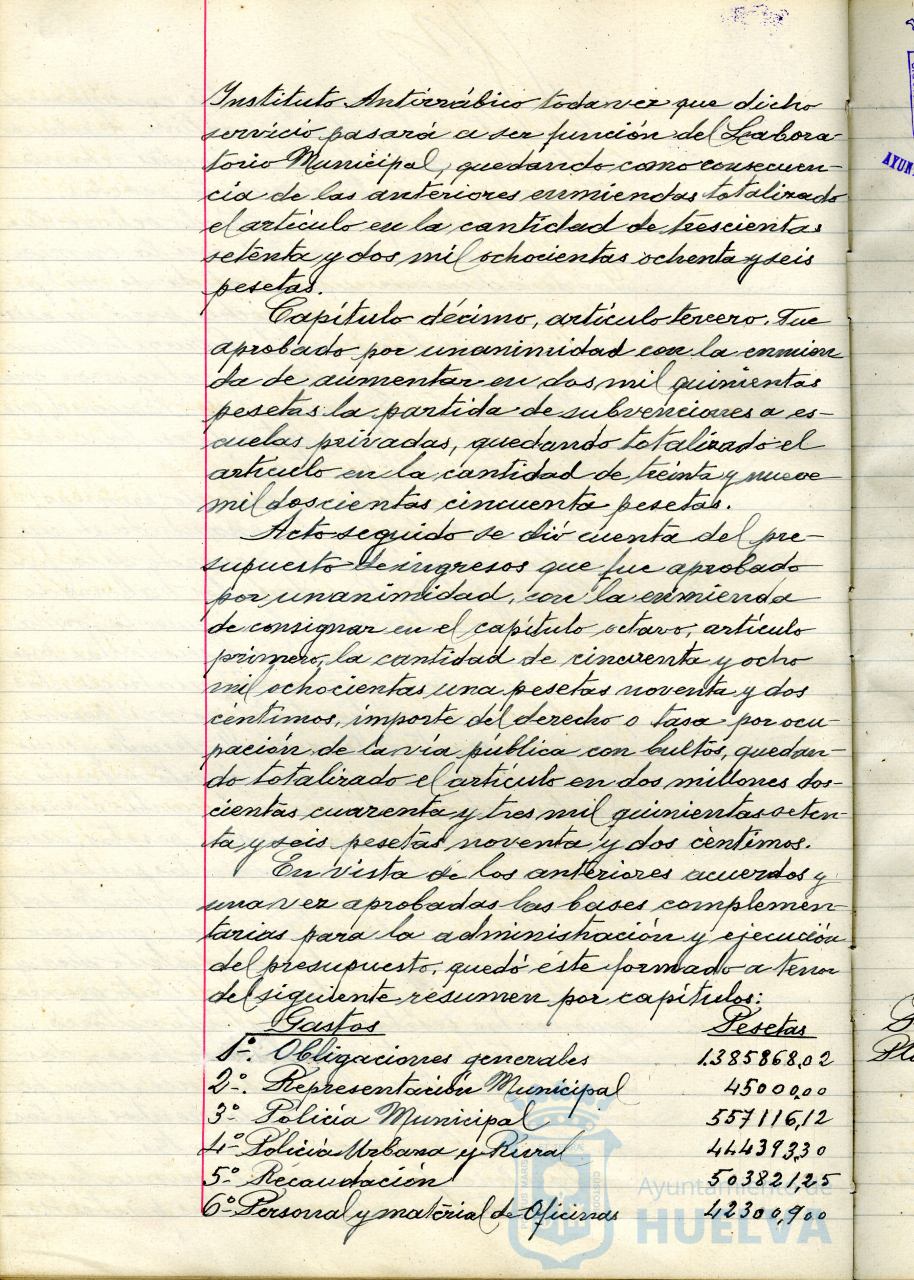 Instituto Antirrábico toda vez que dicho
servicio pasará a ser función del Labora-
torio Municipal, quedando como consecuen-
cia de las anteriores enmiendas totalizado
el artículo en la cantidad de trescientas
setenta y dos mil ochocientas ochenta y seis
pesetas.
Capítulo décimo, artículo tercero. Fue
aprobado por unanimidad con la enmien-
da de aumentar en dos mil quinientas
pesetas la partida de subvenciones a es-
cuelas privadas, quedando totalizado el
artículo en la cantidad de treinta y nueve
mil doscientas cincuenta pesetas.
Acto seguido se dió cuenta del pre-
supuesto de ingresos que fue aprobado
por unanimidad, con la enmienda
de consignar en el capítulo octavo, artículo
primero, la cantidad de cincuenta y ocho
mil ochocientas una pesetas noventa y dos
céntimos, importe del derecho o tasa por ocu-
pación de la vía pública con bultos, quedan-
do totalizado el artículo en dos millones dos-
cientas cuarenta y tres mil quinientas seten-
ta y seis pesetas noventa y dos céntimos.
En vista de los anteriores acuerdos y
una vez aprobadas las bases complemen-
tarias para la administración y ejecución
del presupuesto, quedó éste formado a tenor
del siguiente resumen por capítulos:
Gastos Pesetas
1º. Obligaciones generales 1.385868,02
2º. Representación Municipal 45000,00
3º Policía Municipal 557116,12
4º Policía Urbana y Rural 444393,30
5º Recaudación 503821,25
6º Personal y material de Oficinas
Ayuntamiento de
HUELVA